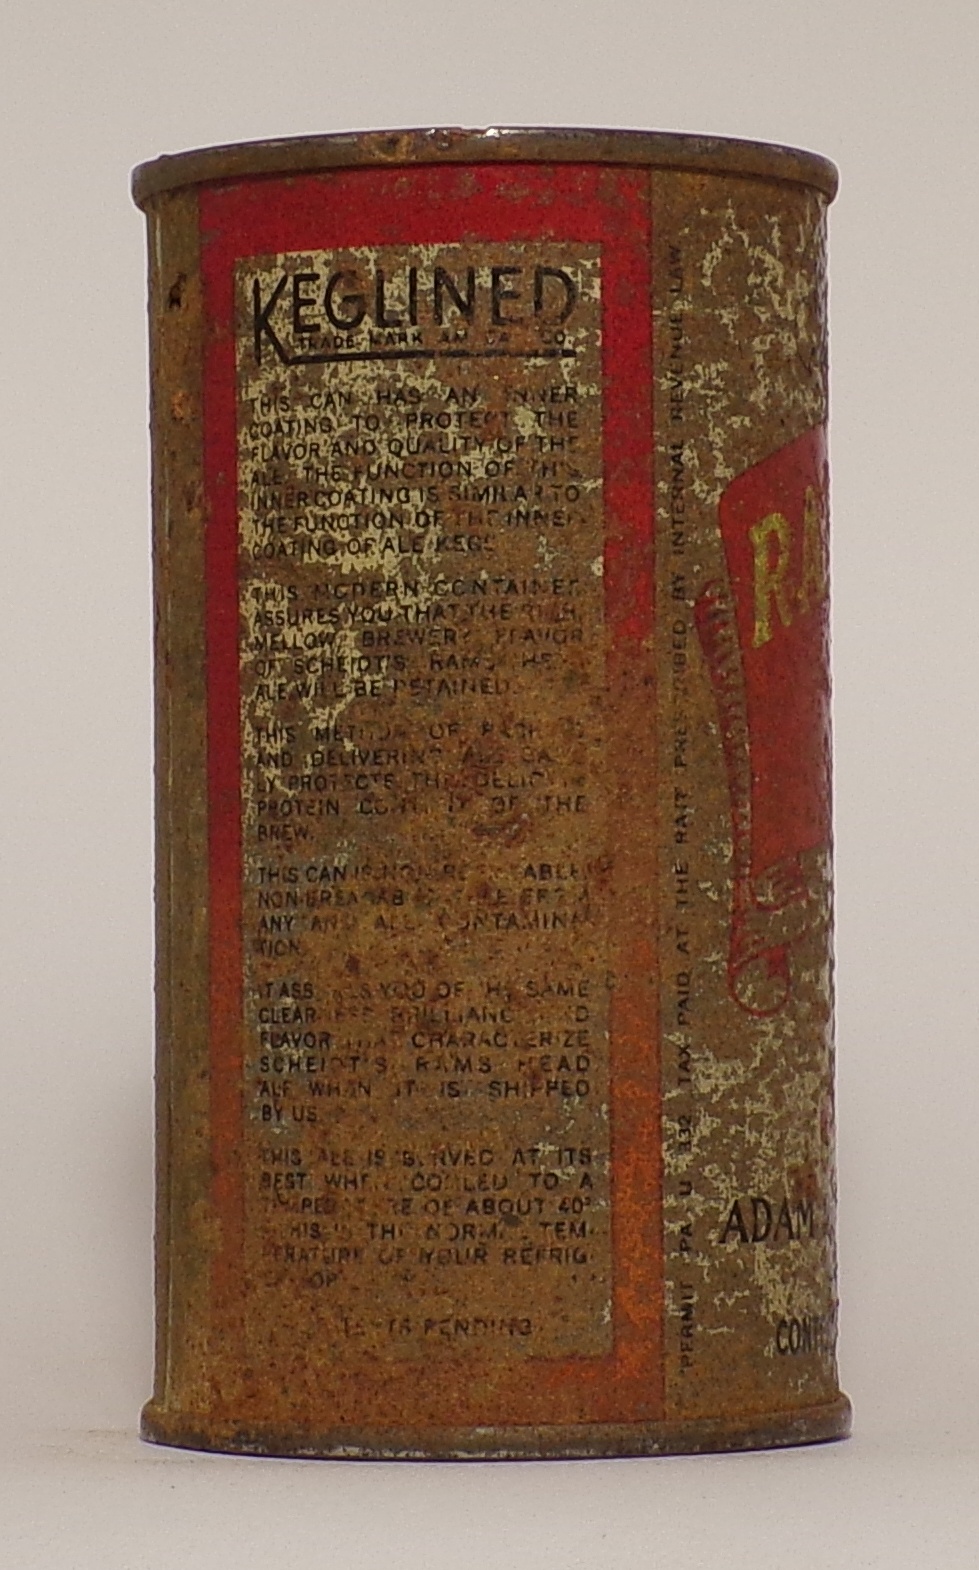 KEGLINED
TRADE-MARK AM. CAN CO.
THIS CAN HAS AN INNER
COATING TO PROTECT THE
FLAVOR AND QUALITY OF THE
ALE. THE FUNCTION OF THIS
INNER COATING IS SIMILAR TO
THE FUNCTION OF THE INNER
COATING OF ALE KEGS.
THIS MODERN CONTAINER
ASSURES YOU THAT THE RICH,
MELLOW, BREWERY FLAVOR
OF SCHEIDT'S RAMS HEAD
ALE WILL BE RETAINED.
THIS METHOD OF
AND DELIVERING ALE
LY PROTECTS THE
PROTEIN CONTENT OF THE
BREW.
THIS CAN IS NON-REFILLABLE,
NON-BREAKABLE
ANY AND ALL CONTAMINA-
TION.
IT ASSURES YOU OF THE SAME
CLEARNESS BRILLIANCE AND
FLAVOR THAT CHARACTERIZE
SCHEIDT'S RAMS HEAD
ALE WHEN IT IS SHIPPED
BY US.
THIS ALE IS SERVED AT ITS
BEST WHEN COOLED TO A
TEMPERATURE OF ABOUT 40°
THIS IS THE NORMAL TEM-
PERATURE OF YOUR REFRIG-
ERATOR.
PATENTS PENDING
PERMIT PA U 332 TAX PAID AT THE RATE PRESCRIBED BY INTERNAL REVENUE LAW
RA
ADAM
CONT